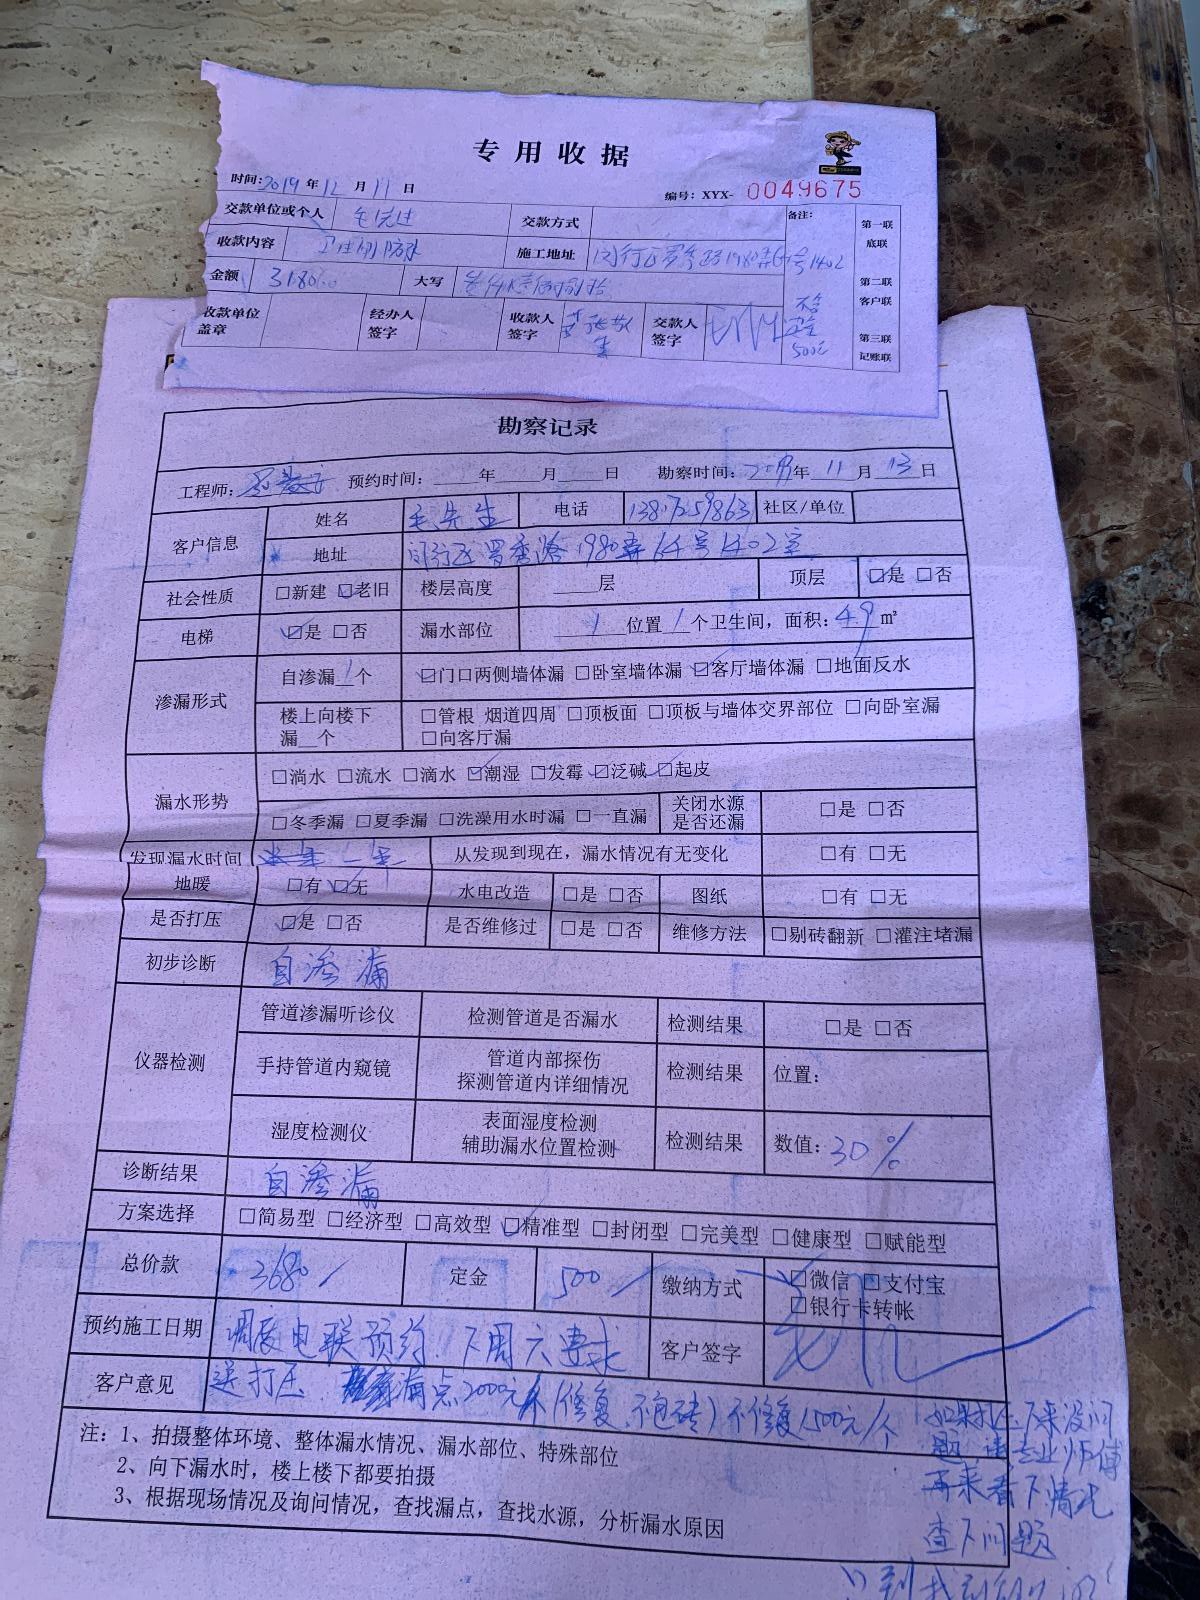 专用收据
时间:2019年12月11日 编号:XYX- 0049675
交款单位或个人 毛先生 交款方式 备注: 第一联 底联
收款内容 卫生间防水 施工地址 闵行区罗秀路1980弄64号1402 第二联 客户联
金额 3180 大写
收款单位盖章 经办人签字 收款人签字 交款人签字 不含定金500元 第三联 记账联
勘察记录
工程师: 预约时间: 年 月 日 勘察时间:2019年11月13日
客户信息 姓名 毛先生 电话 社区/单位
地址 闵行区罗秀路1980弄64号1402室
社会性质 □新建 ☑老旧 楼层高度 层 顶层 ☑是 □否
电梯 ☑是 □否 漏水部位 1位置1个卫生间，面积:4.9㎡
渗漏形式 自渗漏1个 ☑门口两侧墙体漏 □卧室墙体漏 ☑客厅墙体漏 □地面反水
楼上向楼下漏__个 □管根 烟道四周 □顶板面 □顶板与墙体交界部位 □向卧室漏
□向客厅漏
漏水形势 □淌水 □流水 □滴水 ☑潮湿 □发霉 ☑泛碱 ☑起皮
□冬季漏 □夏季漏 □洗澡用水时漏 □一直漏 关闭水源是否还漏 □是 □否
发现漏水时间 一年 从发现到现在，漏水情况有无变化 □有 □无
地暖 □有 ☑无 水电改造 □是 □否 图纸 □有 □无
是否打压 ☑是 □否 是否维修过 □是 □否 维修方法 □剔砖翻新 □灌注堵漏
初步诊断 自渗漏
仪器检测 管道渗漏听诊仪 检测管道是否漏水 检测结果 □是 □否
手持管道内窥镜 管道内部探伤 探测管道内详细情况 检测结果 位置:
湿度检测仪 表面湿度检测 辅助漏水位置检测 检测结果 数值:30%
诊断结果 自渗漏
方案选择 □简易型 □经济型 □高效型 ☑精准型 □封闭型 □完美型 □健康型 □赋能型
总价款 3680 定金 500 缴纳方式 ☑微信 □支付宝
□银行卡转帐
预约施工日期 调度电联预约 下周六要求 客户签字
客户意见 送打压 漏点2000元/个(修复 砖) 不修复1500元/个
如果打压下来没问
题 请专业师傅
再来看下情况
查下问题
注:1、拍摄整体环境、整体漏水情况、漏水部位、特殊部位
2、向下漏水时，楼上楼下都要拍摄
3、根据现场情况及询问情况，查找漏点，查找水源，分析漏水原因